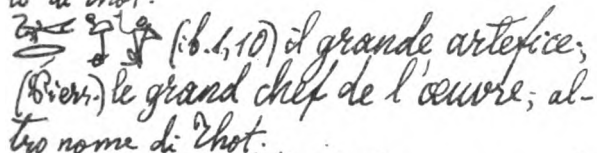 (ib. 1, 10) il grande artefice;
(Pierr.) le grand chef de l'œuvre; al-
tro nome di Thot.